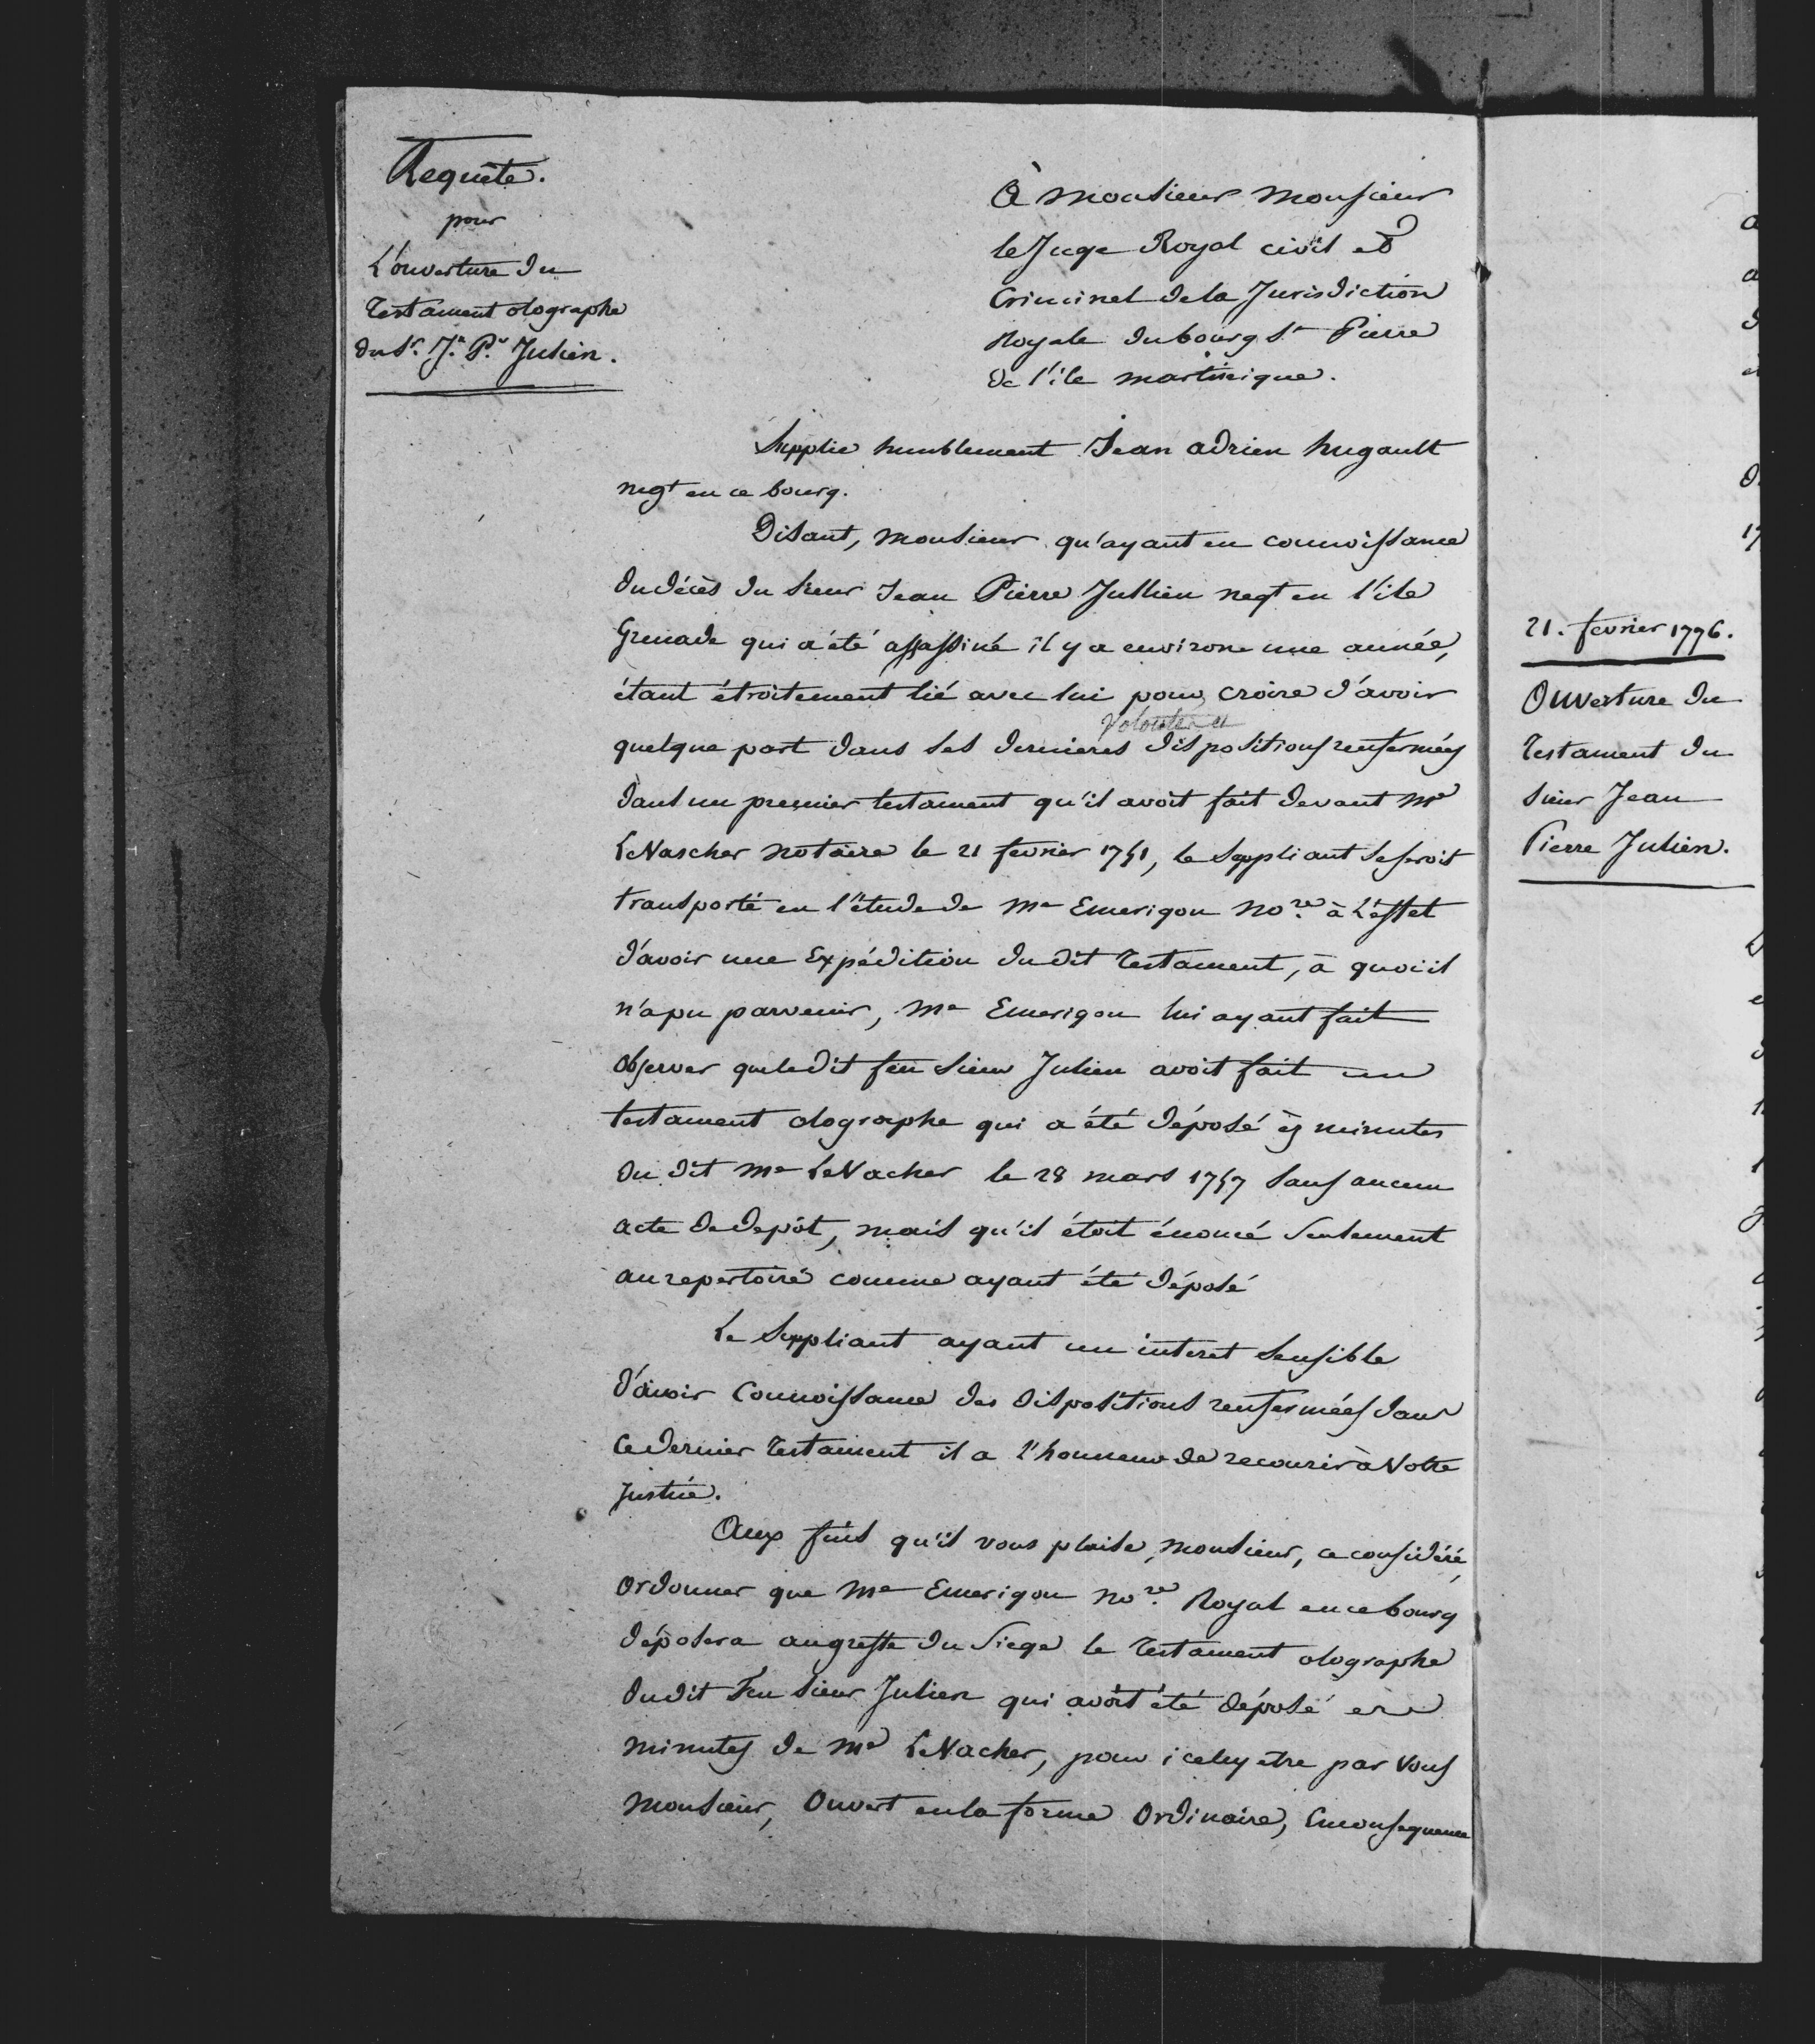 Requête.
pour
L'ouverture du
Testament olographe
du Sr. Jn. Pre. Julien.
À Monsieur Monsieur
le Juge Royal civil et
Criminel de la Jurisdiction
Royale du bourg St Pierre
de l'ile martinique.
Supplie humblement Jean adrien hugault
negt en ce bourg.
Disant, Monsieur qu'ayant eu connoissance
du décès du Sieur Jean Pierre Jullien negt en l'ile
Grenade qui a été assassiné il y a environ une année,
étant étroitement lié avec lui pour croire d'avoir
quelque part dans ses dernieres dispositions renfermées
dans un premier testament qu'il avoit fait devant Me
LeNascher notaire le 21 fevrier 1791, le Suppliant Seseroit
transporté en l'étude de Me Emerigon Nore. à L'effet
d'avoir une Expédition dudit Testament, à quoi il
n'a pu parvenir, Me Emerigon lui ayant fait
observer que ledit feu Sieur Julien avoit fait un
testament olographe qui a été déposé ès minutes
du dit Me LeNacher le 28 mars 1757 sans aucun
acte de depôt, mais qu'il étoit énoncé seulement
au repertoire comme ayant été déposé
Le Suppliant ayant un interet sensible
d'avoir Connoissance des dispositions renfermées dans
ce dernier Testament il a l'honneur de recourir à Votre
Justice.
Aux fins qu'il vous plaise, Monsieur, ce considéré,
ordonner que Me Emerigon nore. Royal en ce bourg
déposera au greffe du Siege le Testament olographe
dudit feu Sieur Julien qui avoit été déposé es
minutes de Me LeNacher, pour iceluy etre par Vous
Monsieur, Ouvert en la forme Ordinaire, Enconsequence
21. fevrier 1776.
Ouverture du
Testament du
Sieur Jean
Pierre Julien.